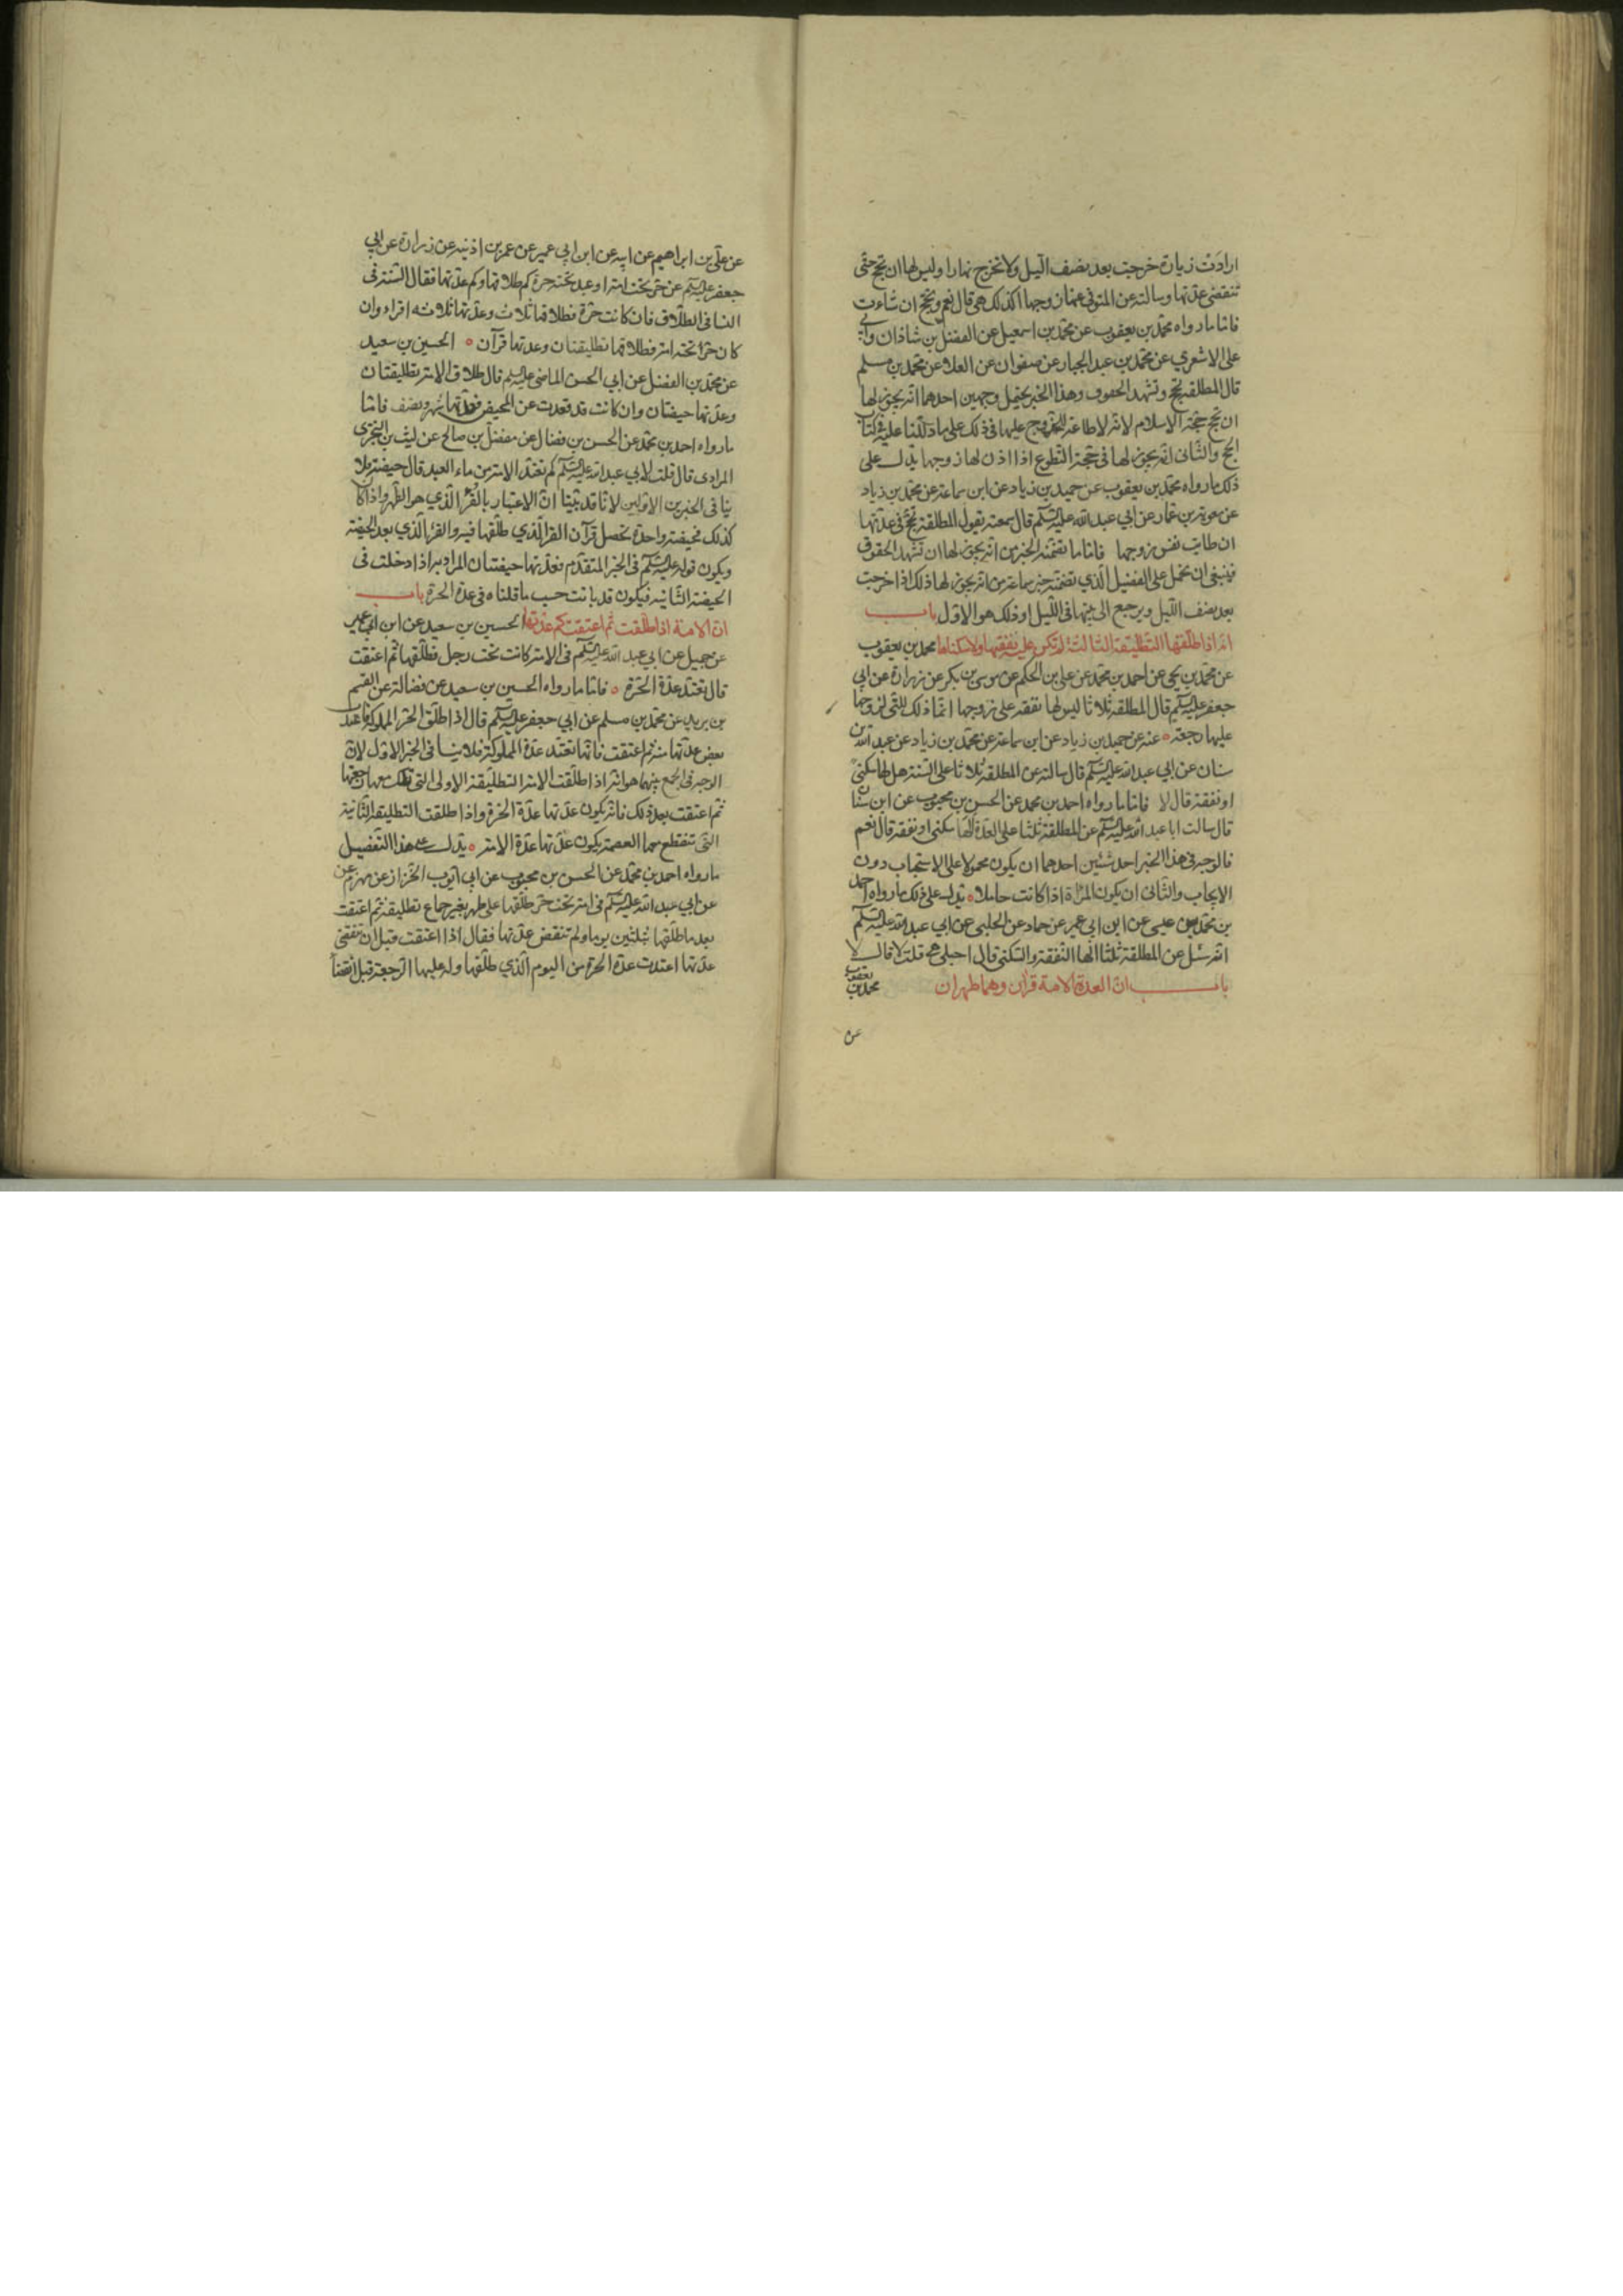 ارادت زيارة خرجت بعد نصف الليل ولا تخرج نهارا وليس لها ان تحج حتى
تنقضى عدتها وسالته عن المتوفى عنها زوجها اكذلك هى قال نعم وتحج ان شاءت
فاما ما رواه محمد بن يعقوب عن محمد بن اسمعيل عن الفضل بن شاذان وابى
على الاشعري عن محمد بن عبد الجبار عن صفوان عن العلا عن محمد بن مسلم
قال المطلقة تحج وتشهد الحقوق وهذا الخبر يحتمل وجهين احدهما انه يجوز لها
ان تحج حجة الاسلام لانه لا طاعة للزوج عليها فى ذلك على ما دللنا عليه فى كتاب
الحج والثانى انه يجوز لها فى حجة التطوع اذا اذن لها زوجها يدل على
ذلك ما رواه محمد بن يعقوب عن حميد بن زياد عن ابن سماعة عن محمد بن زياد
عن معوية بن عمار عن ابي عبد الله عليه السلم قال سمعته يقول المطلقة تحج فى عدتها
ان طابت نفس زوجها فاما ما تضمنه الخبر من انه يجوز لها ان تشهد الحقوق
فينبغى ان نحمل على التفصيل الذي تضمنه خبر سماعة من انه يجوز لها ذلك اذا خرجت
بعد نصف الليل وترجع الى بيتها فى الليل اوذلك هو الاول باب
انه اذا طلقها التطليقة الثالثة لم تكن عليه نفقتها ولا سكناها محمد بن يعقوب
عن محمد بن يحيى عن احمد بن محمد عن على بن الحكم عن موسى بن بكر عن زرارة عن ابي
جعفر عليه السلم قال المطلقة ثلاثا ليس لها نفقة على زوجها انما ذلك للتى لزوجها
عليها رجعة عنه عن حميد بن زياد عن ابن سماعة عن محمد بن زياد عن عبد الله بن
سنان عن ابي عبد الله عليه السلم قال سالته عن المطلقة ثلاثا على السنة هل لها سكنى
او نفقة قال لا فاما ما رواه احمد بن محمد عن الحسن بن محبوب عن ابن سنان
قال سالت ابا عبد الله عليه السلم عن المطلقة ثلثا على العدة الها سكنى او نفقة قال نعم
فالوجه فى هذا الخبر احد شيئين احدهما ان يكون محمولا على الاستحباب دون
الايجاب والثانى ان يكون المراة اذا كانت حاملا يدل على ذلك ما رواه احمد
بن محمد بن عيسى عن ابن ابي عمير عن حماد عن الحلبى عن ابي عبد الله عليه السلم
انه سئل عن المطلقة ثلثا الها النفقة والسكنى قال احبلى هى قلت لا قال لا
باب ان العدة الامة قرآن وهما طهران محمد بن يعقوب
عن
عن على بن ابراهيم عن ابيه عن ابن ابي عمير عن عمر بن اذنيه عن زرارة عن ابي
جعفر عليه السلم عن حر تحته امة او عبد تحته حرة كم طلاقها وكم عدتها فقال السنة فى
النساء فى الطلاق فان كانت حرة فطلاقها ثلاث وعدتها ثلاثه اقراء وان
كان حرا تحته امة فطلاقها تطليقتان وعدتها قرآن الحسين بن سعيد
عن محمد بن الفضل عن ابي الحسن الماضى عليه السلم قال طلاق الامة تطليقتان
وعدتها حيضتان وان كانت قد قعدت عن المحيض فعدتها شهر ونصف فاما
ما رواه احمد بن محمد عن الحسن بن فضال عن مفضل بن صالح عن ليث بن البخترى
المرادى قال قلت لابي عبد الله عليه السلم كم تعتد الامة من ماء العبد قال حيضة فلا
ينافى الخبرين الاولين لانا قد بينا ان الاعتبار بالقرء الذي هو الطهر واذا كان
كذلك فحيضة واحدة تحصل قرآن القرء الذي طلقها فيه والقرء الذي بعد الحيضة
ويكون قوله عليه السلم فى الخبر المتقدم فعدتها حيضتان المراد به اذا دخلت فى
الحيضة الثانيه فيكون قد بانت حسب ما قلناه فى عدة الحرة باب
ان الامة اذا طلقت ثم اعتقت كم عدتها الحسين بن سعيد عن ابن ابي عمير
عن جميل عن ابي عبد الله عليه السلم فى الامة كانت تحت رجل فطلقها ثم اعتقت
قال تعتد عدة الحرة فاما ما رواه الحسين بن سعيد عن فضالة عن القسم
بن بريد عن محمد بن مسلم عن ابي جعفر عليه السلم قال اذا طلق الحر المملوكة فاعتدت
بعض عدتها منه ثم اعتقت فانها تعتد عدة المملوكة فلا ينافى الخبر الاول لان
الوجه فى الجمع بينهما هو انه اذا طلقت الامة التطليقة الاولى التى تملك معها رجعتها
ثم اعتقت بعد ذلك فانه يكون عدتها عدة الحرة واذا طلقت التطليقة الثانية
التى تنقطع معها العصمة يكون عدتها عدة الامة يدل على هذا التفصيل
ما رواه احمد بن محمد عن الحسن بن محبوب عن ابي ايوب الخزاز عن مهزم عن
عن ابي عبد الله عليه السلم فى امة تحت حر طلقها على طهر بغير جماع تطليقة ثم اعتقت
بعد ما طلقها بثلثين يوما ولم تنقض عدتها فقال اذا اعتقت قبل ان تنقضى
عدتها اعتدت عدة الحرة من اليوم الذي طلقها وله عليها الرجعة قبل انقضاء